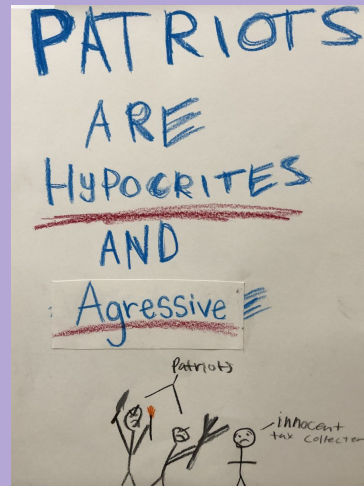 PATRIOTS
ARE
HYPOCRITES
AND
Agressive
Patriots
innocent
tax collecter